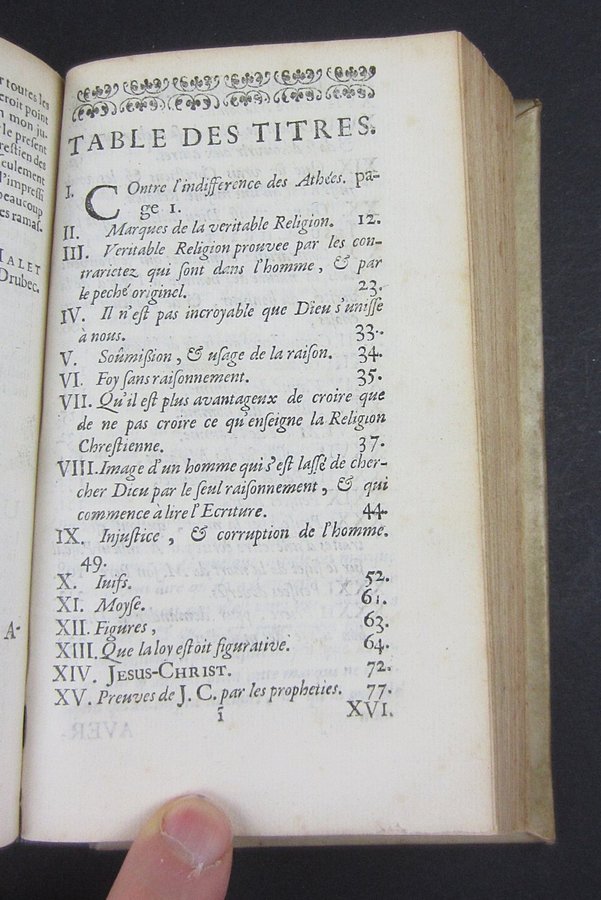 r toutes les
eroit point
n mon ju-
le present
restien des
eulement
l'impressi
beaucoup
es ramas.
MALET
Drubec.
A-
TABLE DES TITRES.
I. COntre l'indifference des Athées. pa-
ge 1.
II. Marques de la veritable Religion. 12.
III. Veritable Religion prouvee par les con-
trarietez qui sont dans l'homme, & par
le peché originel. 23.
IV. Il n'est pas incroyable que Dieu s'unisse
à nous. 33.
V. Soûmission, & usage de la raison. 34.
VI. Foy sans raisonnement. 35.
VII. Qu'il est plus avantageux de croire que
de ne pas croire ce qu'enseigne la Religion
Chrestienne. 37.
VIII. Image d'un homme qui s'est lassé de cher-
cher Dieu par le seul raisonnement, & qui
commence à lire l'Ecriture. 44.
IX. Injustice, & corruption de l'homme.
49.
X. Iuifs. 52.
XI. Moyse. 61.
XII. Figures, 63.
XIII. Que la loy estoit figurative. 64.
XIV. JESUS-CHRIST. 72.
XV. Preuves de J. C. par les propheties. 77.
ĩ XVI.